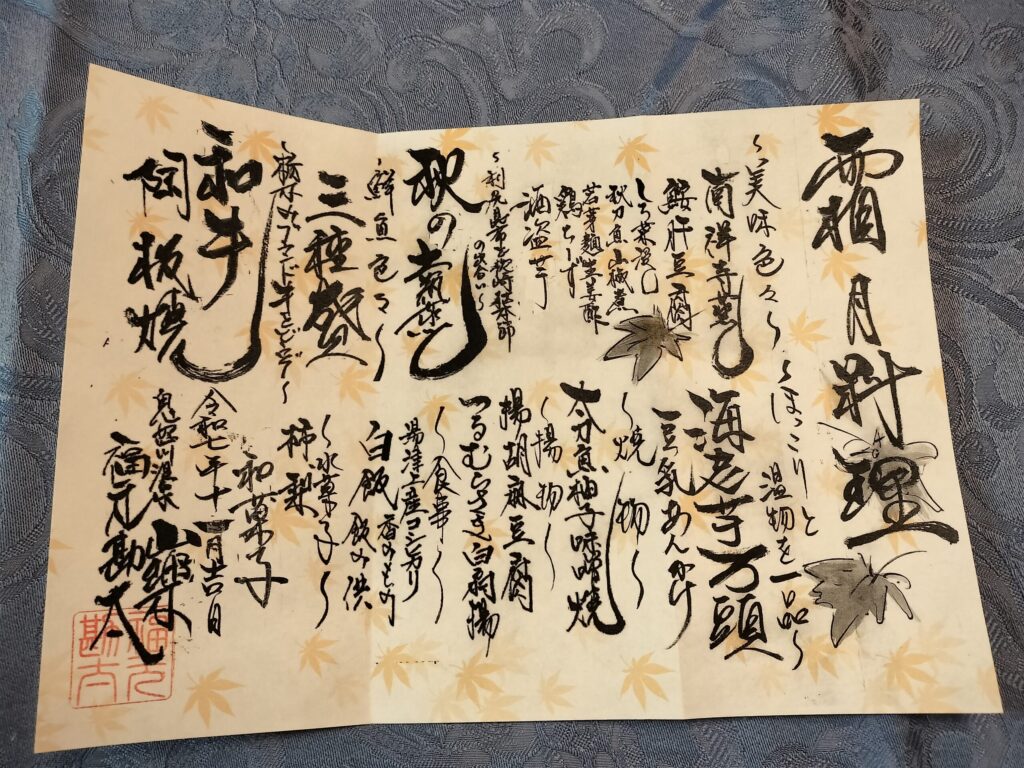 霜月料理
〜美味色々〜
南禅寺蒸し
鮟肝豆腐
しろ菜浸し
秋刀魚山椒煮
若芽麺 生姜酢
酒盗芋
秋の
鮮魚色々〜
三種盛
〜栃木のブランド牛をどうぞ〜
和牛
陶板焼
〜ほっこりと
温物を一品〜
海老芋万頭
豆乳あんかけ
〜焼物〜
太刀魚柚子味噌焼
〜揚物〜
揚胡麻豆腐
つるむらさき白扇揚
〜食事〜
湯津上産コシヒカリ
白飯 香のもの
飯の供
〜水菓子〜
柿 梨
和菓子
令和七年十一月吉日
鬼怒川温泉 山楽
福元勘太
福元
勘太